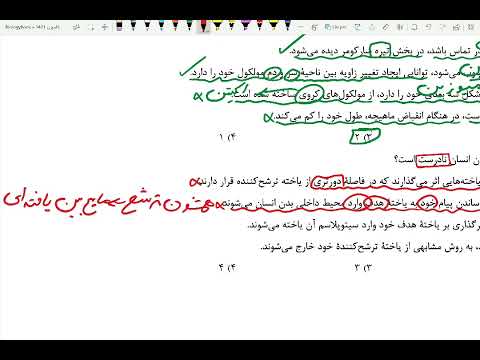 ر تماس باشد، در بخش تیره سارکومر دیده می‌شود.
می‌شود، توانایی ایجاد تغییر زاویه بین ناحیۀ سر و دم مولکول خود را دارد.
شکل سه بعدی خود را دارد، از مولکول‌های کروی ساخته شده است.
ست، در هنگام انقباض ماهیچه، طول خود را کم می‌کند.
۲ (۳ ۱ (۴
ن انسان نادرست است؟
یاخته‌هایی اثر می‌گذارند که در فاصلۀ دورتری از یاخته ترشح‌کننده قرار دارند.
ساندن پیام خود به یاختۀ هدف وارد محیط داخلی بدن انسان می‌شوند.
همشون ترشح به مایع بین یاخته‌ای
رگذاری بر یاختۀ هدف خود وارد سیتوپلاسم آن یاخته می‌شوند.
، به روش مشابهی از یاختۀ ترشح‌کنندۀ خود خارج می‌شوند.
۳ (۳ ۴ (۴